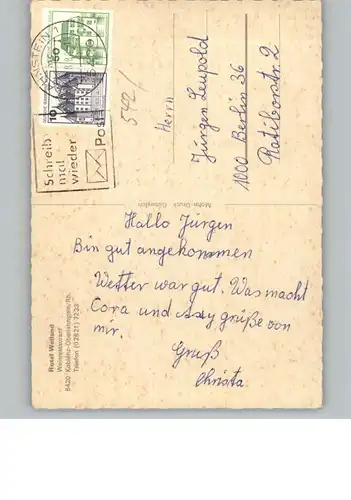 Schreib
mal
wieder
Post
60
10
542/
Herrn
Jürgen Leupold
1000 Berlin 36
Ratiborstr. 2
Mohn-Druck Gütersloh
Hallo Jürgen
Bin gut angekommen
Wetter war gut. Was macht
Cora und grüße von
mir.
Gruß
Christa
Rosel Weiland
Weinrestaurant
Telefon